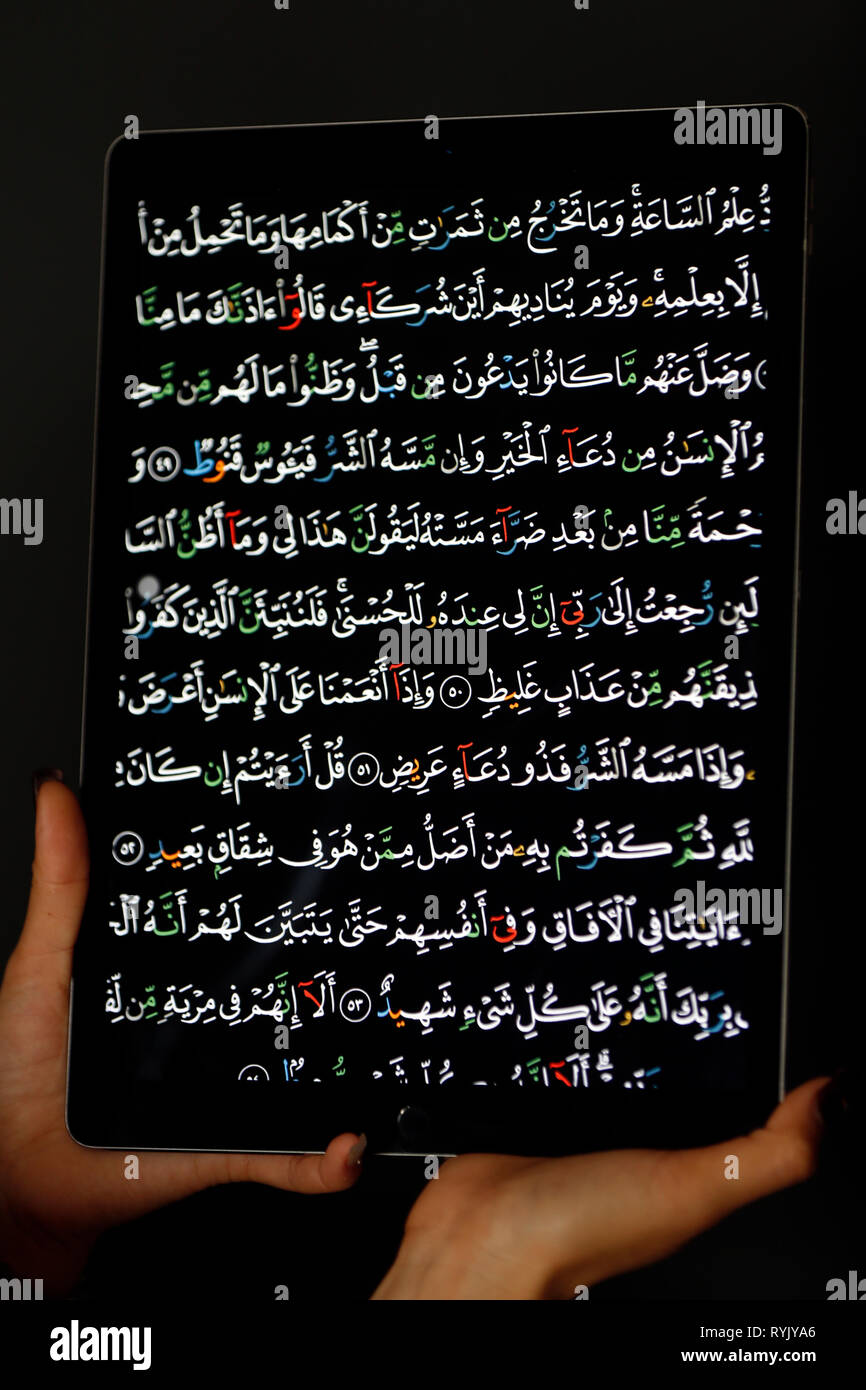 عِلْمُ ٱلسَّاعَةِ ۚ وَمَا تَخْرُجُ مِن ثَمَرَٰتٍ مِّنْ أَكْمَامِهَا وَمَا تَحْمِلُ مِنْ أُ
إِلَّا بِعِلْمِهِۦ ۚ وَيَوْمَ يُنَادِيهِمْ أَيْنَ شُرَكَآءِى قَالُوٓا۟ ءَاذَنَّٰكَ مَا مِنَّا
وَضَلَّ عَنْهُم مَّا كَانُوا۟ يَدْعُونَ مِن قَبْلُ ۖ وَظَنُّوا۟ مَا لَهُم مِّن مَّحِ
ٱلْإِنسَٰنُ مِن دُعَآءِ ٱلْخَيْرِ وَإِن مَّسَّهُ ٱلشَّرُّ فَيَـُٔوسٌ قَنُوطٌ ٤٩ وَ
حْمَةً مِّنَّا مِنۢ بَعْدِ ضَرَّآءَ مَسَّتْهُ لَيَقُولَنَّ هَٰذَا لِى وَمَآ أَظُنُّ ٱلسَّا
لَئِن رُّجِعْتُ إِلَىٰ رَبِّىٓ إِنَّ لِى عِندَهُۥ لَلْحُسْنَىٰ ۚ فَلَنُنَبِّئَنَّ ٱلَّذِينَ كَفَرُوا۟
ذِيقَنَّهُم مِّنْ عَذَابٍ غَلِيظٍ ٥٠ وَإِذَآ أَنْعَمْنَا عَلَى ٱلْإِنسَٰنِ أَعْرَضَ وَ
وَإِذَا مَسَّهُ ٱلشَّرُّ فَذُو دُعَآءٍ عَرِيضٍ ٥١ قُلْ أَرَءَيْتُمْ إِن كَانَ مِ
للَّهِ ثُمَّ كَفَرْتُم بِهِۦ مَنْ أَضَلُّ مِمَّنْ هُوَ فِى شِقَاقٍۭ بَعِيدٍ ٥٢
ءَايَٰتِنَا فِى ٱلْءَافَاقِ وَفِىٓ أَنفُسِهِمْ حَتَّىٰ يَتَبَيَّنَ لَهُمْ أَنَّهُ ٱلْحَ
بِرَبِّكَ أَنَّهُۥ عَلَىٰ كُلِّ شَىْءٍ شَهِيدٌ ٥٣ أَلَآ إِنَّهُمْ فِى مِرْيَةٍ مِّن لِّقَ
alamy
alamy
alamy
Image ID: RYJYA6
www.alamy.com